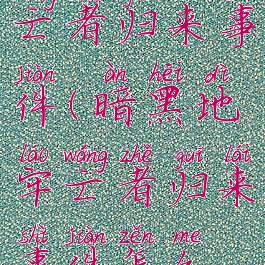 亡者归来事
jiàn àn hēi dì
件(暗黑地
láo wáng zhě guī lái
牢亡者归来
shì jiàn zěn me
事件怎么